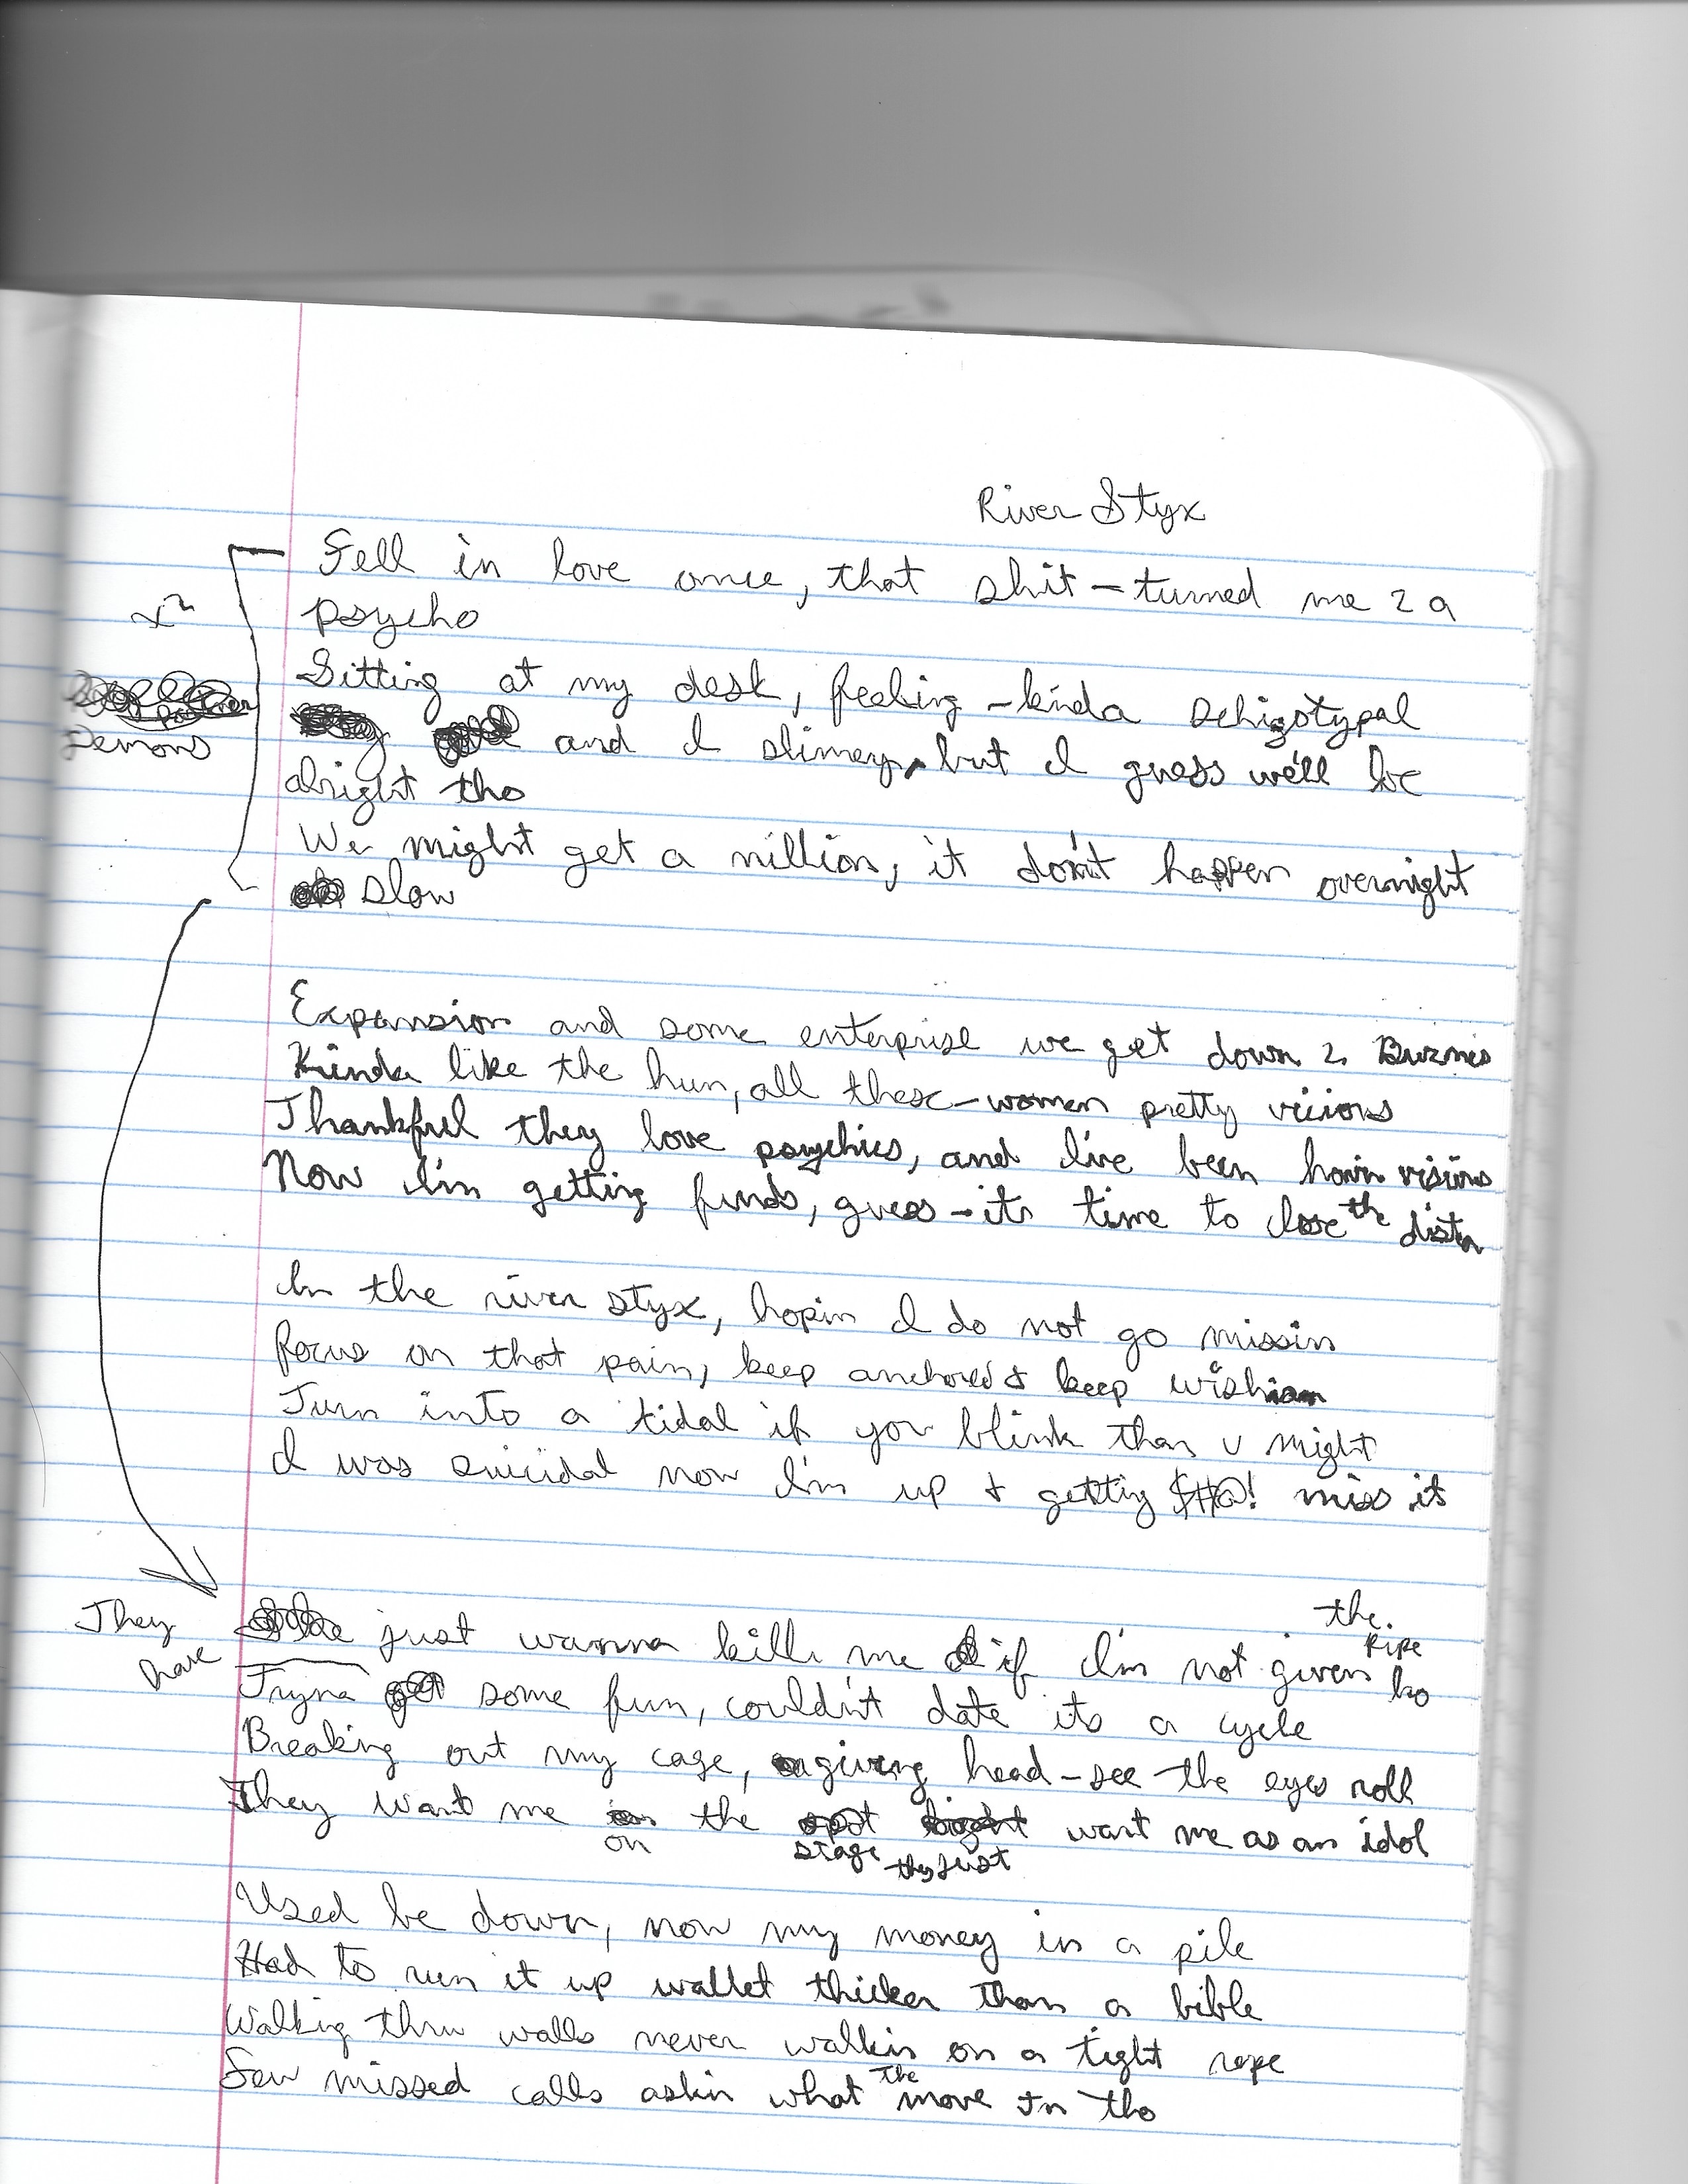 River Styx
Fell in love once, that shit turned me 2 a
psycho
x2
Sitting at my desk, feeling kinda schizotypal
Demons and I slimey, but I guess we'll be
alright tho
We might get a million, it don't happen overnight
slow
Expansion and some enterprise we get down 2 Buznis
Kinda like the hun, all these women pretty vicious
Thankful they love psychics, and I've been havin visions
Now I'm getting funds, guess its time to close the distn
In the river styx, hopin I do not go missin
focus on that pain, keep anchored & keep wishin
Turn into a tidal if you blink than u might
I was suicidal now I'm up & getting $#@! miss it
They just wanna kill me if I'm not given the pipe
bo
Tryna have some fun, couldn't date its a cycle
Breaking out my cage, giving head see the eyes roll
They want me on the stage they just want me as an idol
Used be down, now my money in a pile
Had to run it up wallet thicker than a bible
Walking thru walls never walkin on a tight rope
Few missed calls askin what the move Im tho